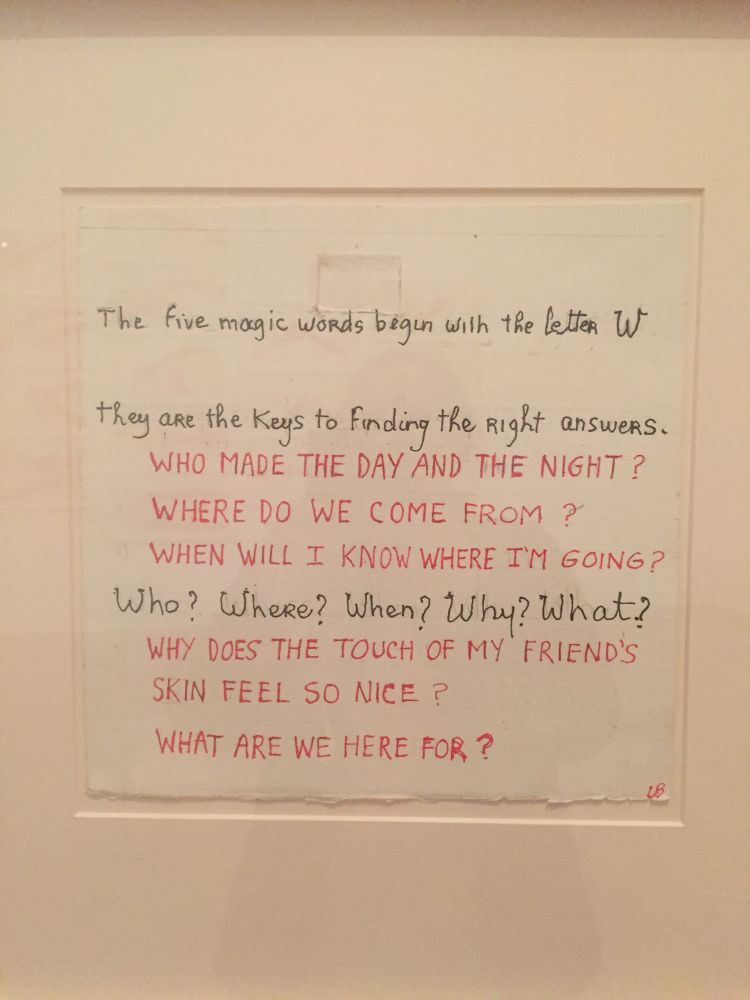 The five magic words begin with the letter W
they are the Keys to Finding the Right answers.
WHO MADE THE DAY AND THE NIGHT?
WHERE DO WE COME FROM?
WHEN WILL I KNOW WHERE I'M GOING?
Who? Where? When? Why? What?
WHY DOES THE TOUCH OF MY FRIEND'S
SKIN FEEL SO NICE?
WHAT ARE WE HERE FOR?
LB